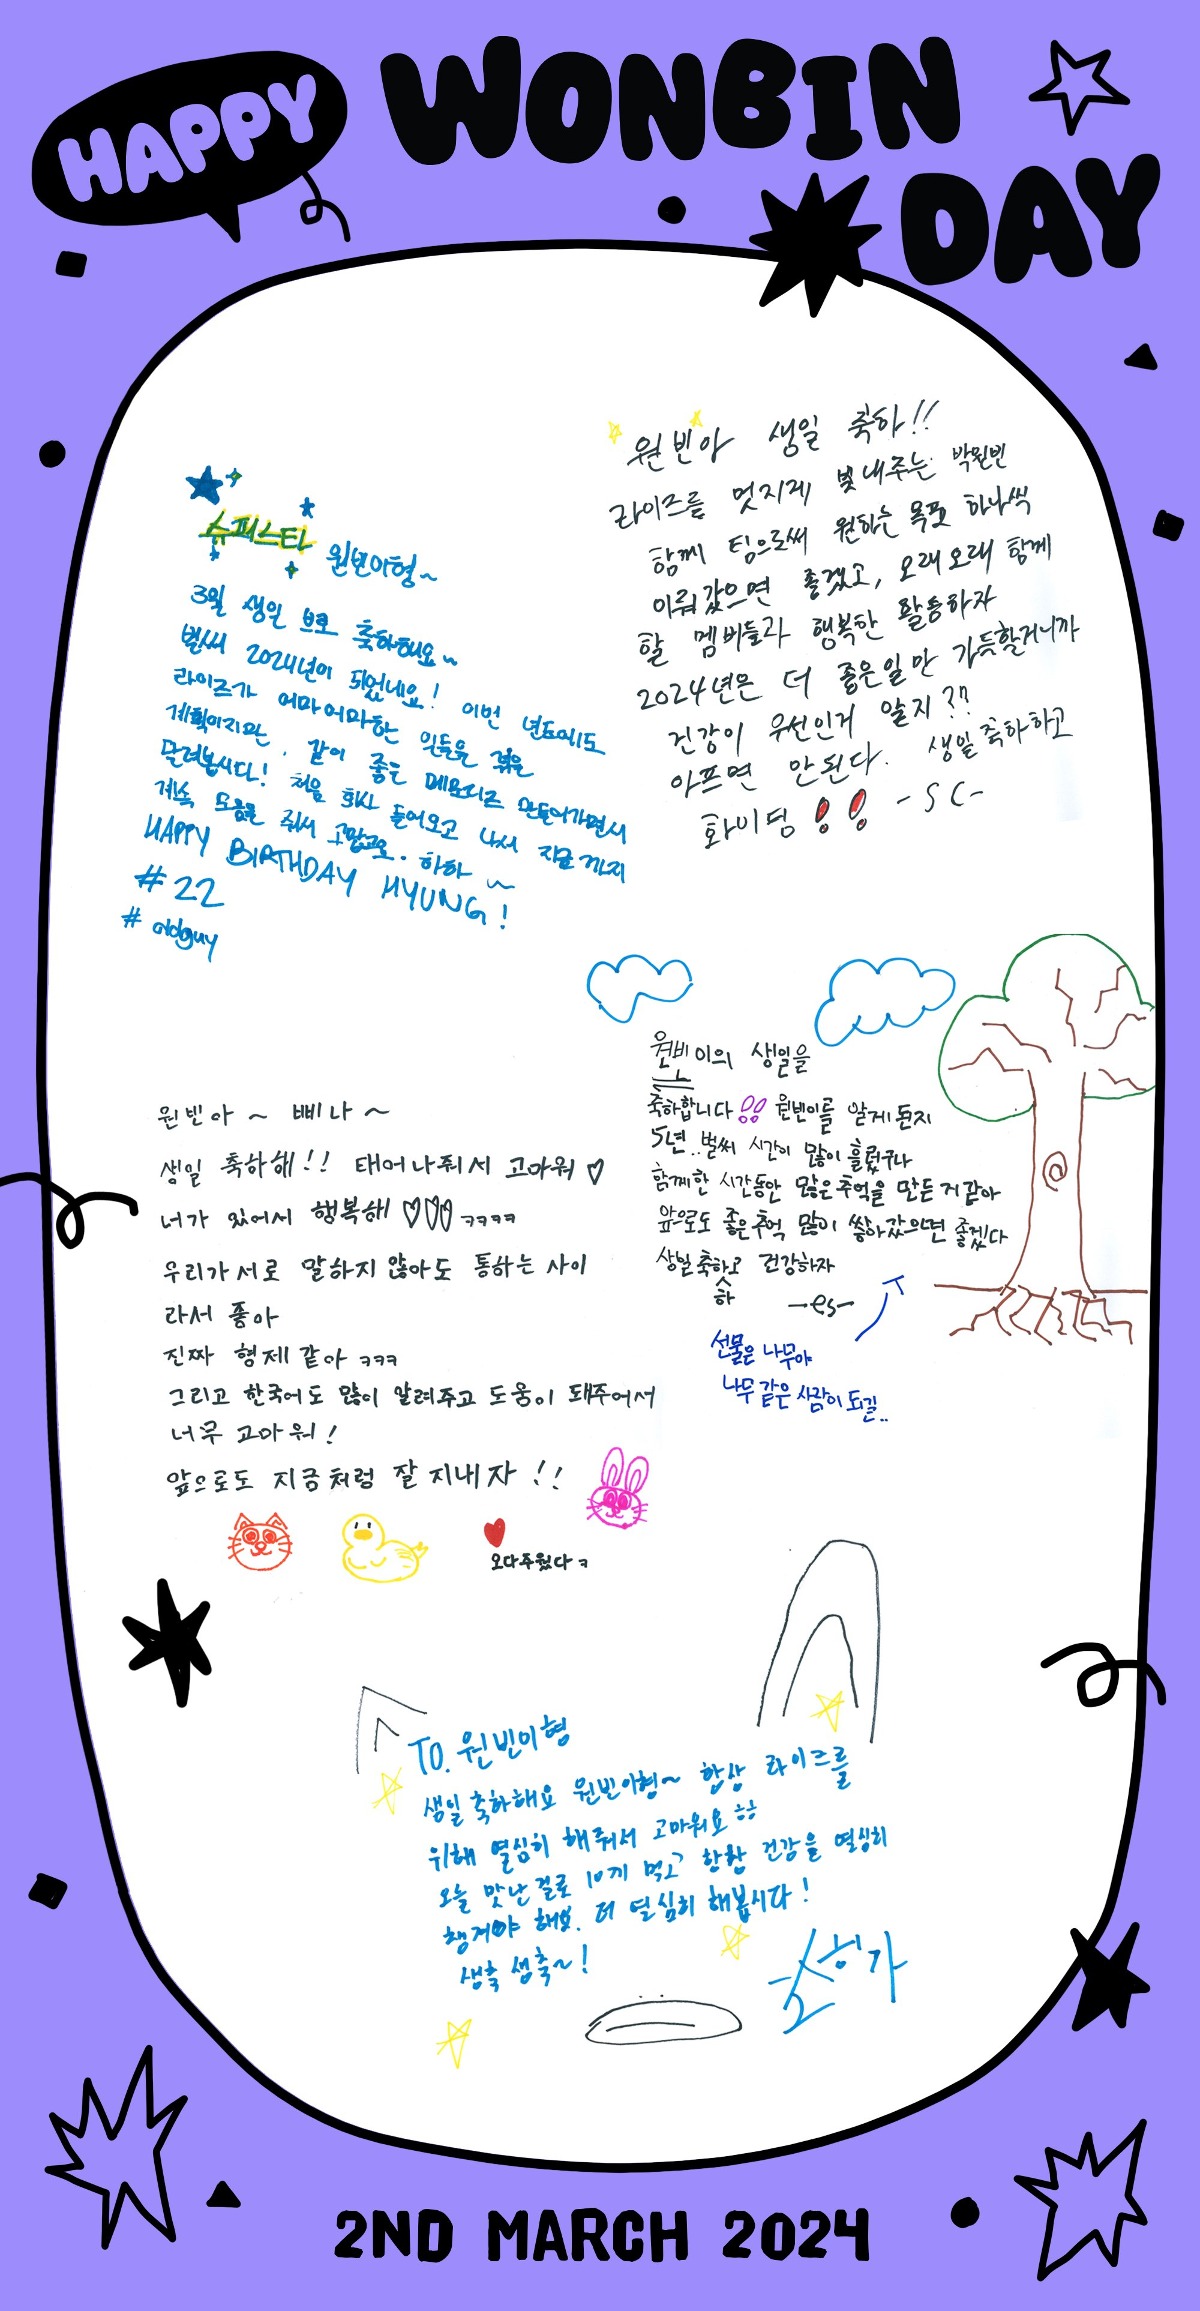 HAPPY
WONBIN
DAY
슈퍼스타 원빈이형~
3월 생일 브로 축하해요~
벌써 2024년이 되었네요! 이번 년도에도
라이즈가 어마어마한 일들을 겪을
계획이지만, 같이 좋은 메모리즈 만들어가면서
달려봅시다! 처음 회사 들어오고 나서 지금까지
계속 도움을 줘서 고맙고요. 하하 ~
HAPPY BIRTHDAY HYUNG!
#22
# oldguy
원빈아 생일 축하!!
라이즈를 멋지게 빛내주는 박원빈
함께 팀으로써 원하는 목표 하나씩
이뤄갔으면 좋겠고, 오래오래 함께
할 멤버들과 행복한 활동하자
2024년은 더 좋은일만 가득할거니까
건강이 우선인거 알지??
아프면 안된다. 생일축하하고
화이팅!! -SC-
원빈이의 생일을
축하합니다!! 원빈이를 알게 된지
5년..벌써 시간이 많이 흘렀구나
함께한 시간동안 많은추억을 만든거 같아
앞으로도 좋은추억 많이 쌓아갔으면 좋겠다
생일축하고 건강하자
하
-es-
선물은 나무야
나무같은 사람이 되길..
원빈아 ~ 삐나 ~
생일 축하해!! 태어나줘서 고마워 ♡
너가 있어서 행복해 ♡♡♡ ㅋㅋㅋㅋ
우리가 서로 말하지 않아도 통하는 사이
라서 좋아
진짜 형제 같아 ㅋㅋㅋ
그리고 한국어도 많이 알려주고 도움이 돼주어서
너무 고마워!
앞으로도 지금처럼 잘 지내자 !!
오다주웠다ㅋ
To. 원빈이형
생일축하해요 원빈이형~ 항상 라이즈를
위해 열심히 해줘서 고마워요 ㅎㅎ
오늘 맛난걸로 10끼 먹고 항상 건강을 열심히
챙겨야 해요. 더 열심히 해봅시다!
생축 생축~!
2ND MARCH 2024